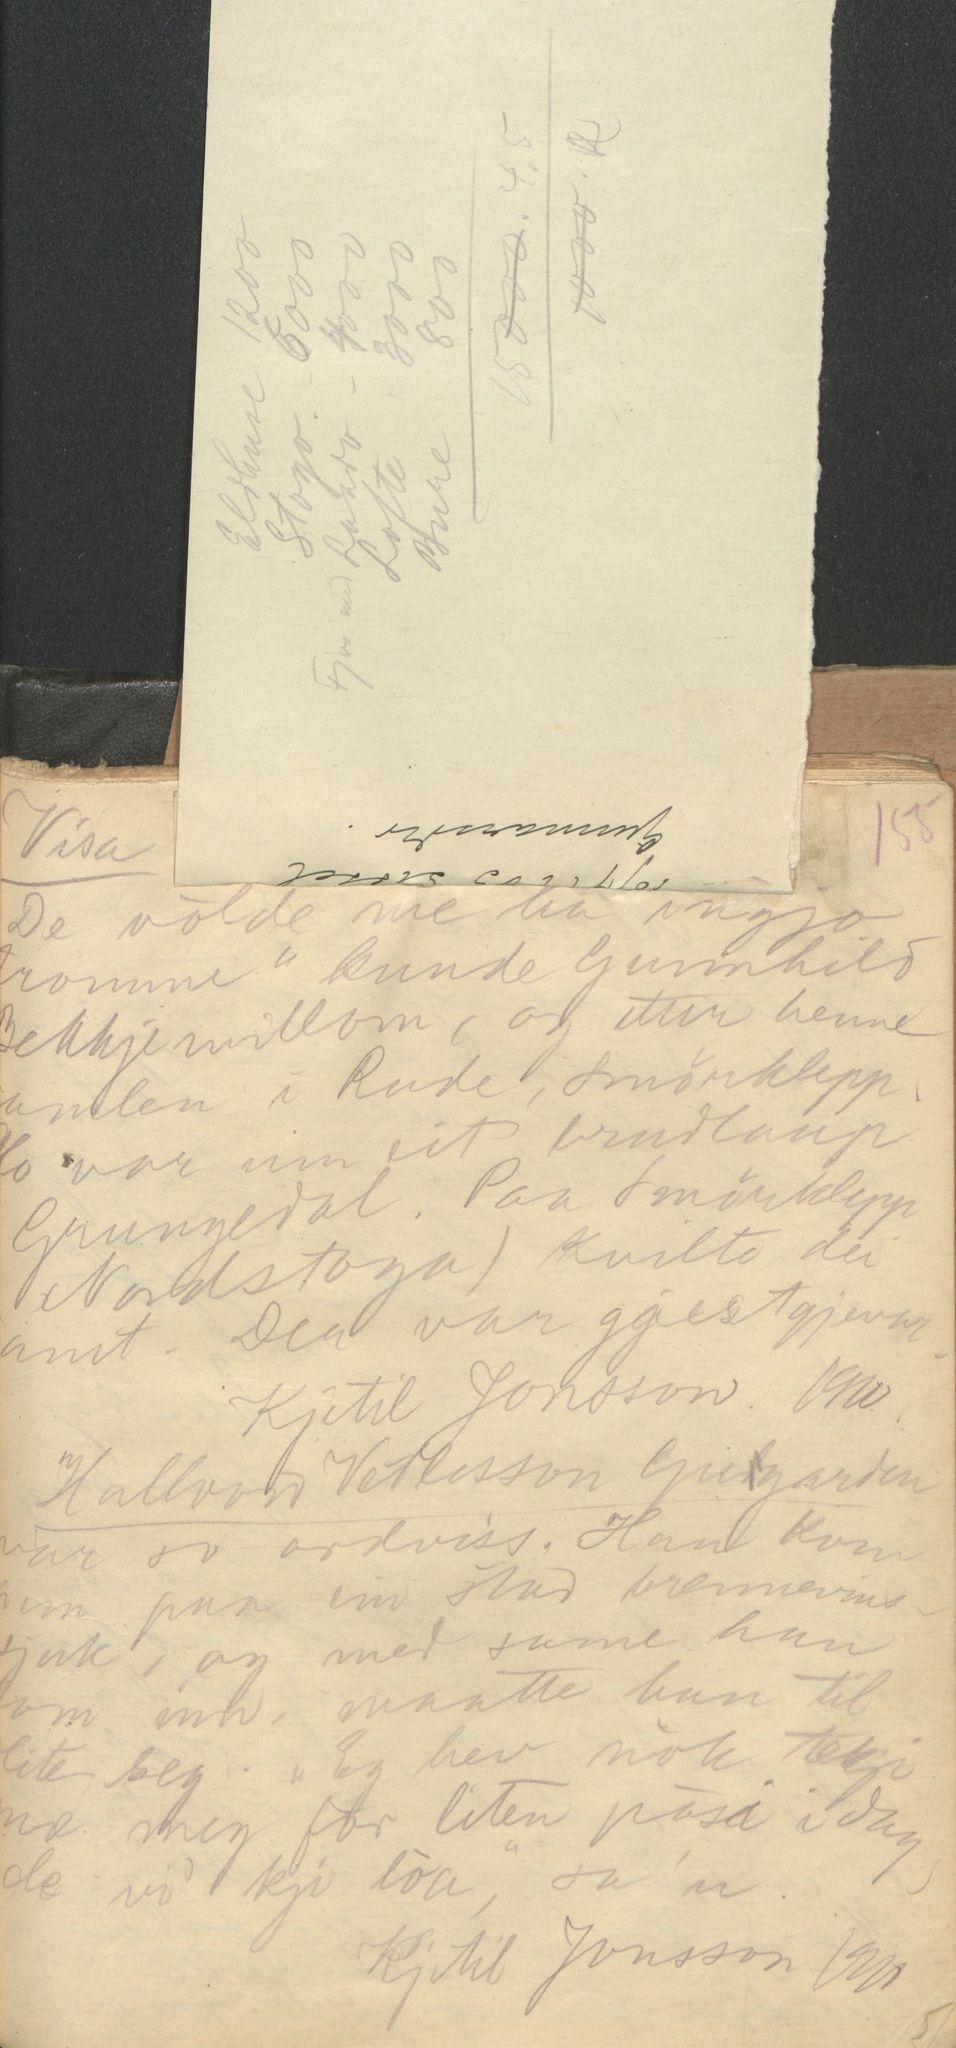 Eldhuse 1200
Stogo - 6000
Fjøs med Laavo - 4000
Lofte 3000
Bure 800
15000. 4,5
1000. R
Gunnarsdtr.
155
Visa
De völde me ha ingjo
romme" kunde Gunnhild
Bekkjemillom, og ettur henne
i Rude, Smörklepp.
Ho var um eit brudlaup
Grungedal. Paa Smörklepp
Nordstoga) kvilte dei
amt. Dea var gjestgjevar
Kjetil Jonsson. 1910.
"Hallvord Vetlesson Gielgarden
var so ordviss. Han kom
um paa ein stad brennevins-
sjuk, og med same han
om inn, maatte han til
lite seg. "Eg hev nök tekji
mæ meg for liten posa i dag,
de vi' kji löa," sa 'n.
Kjetil Jonsson 1910